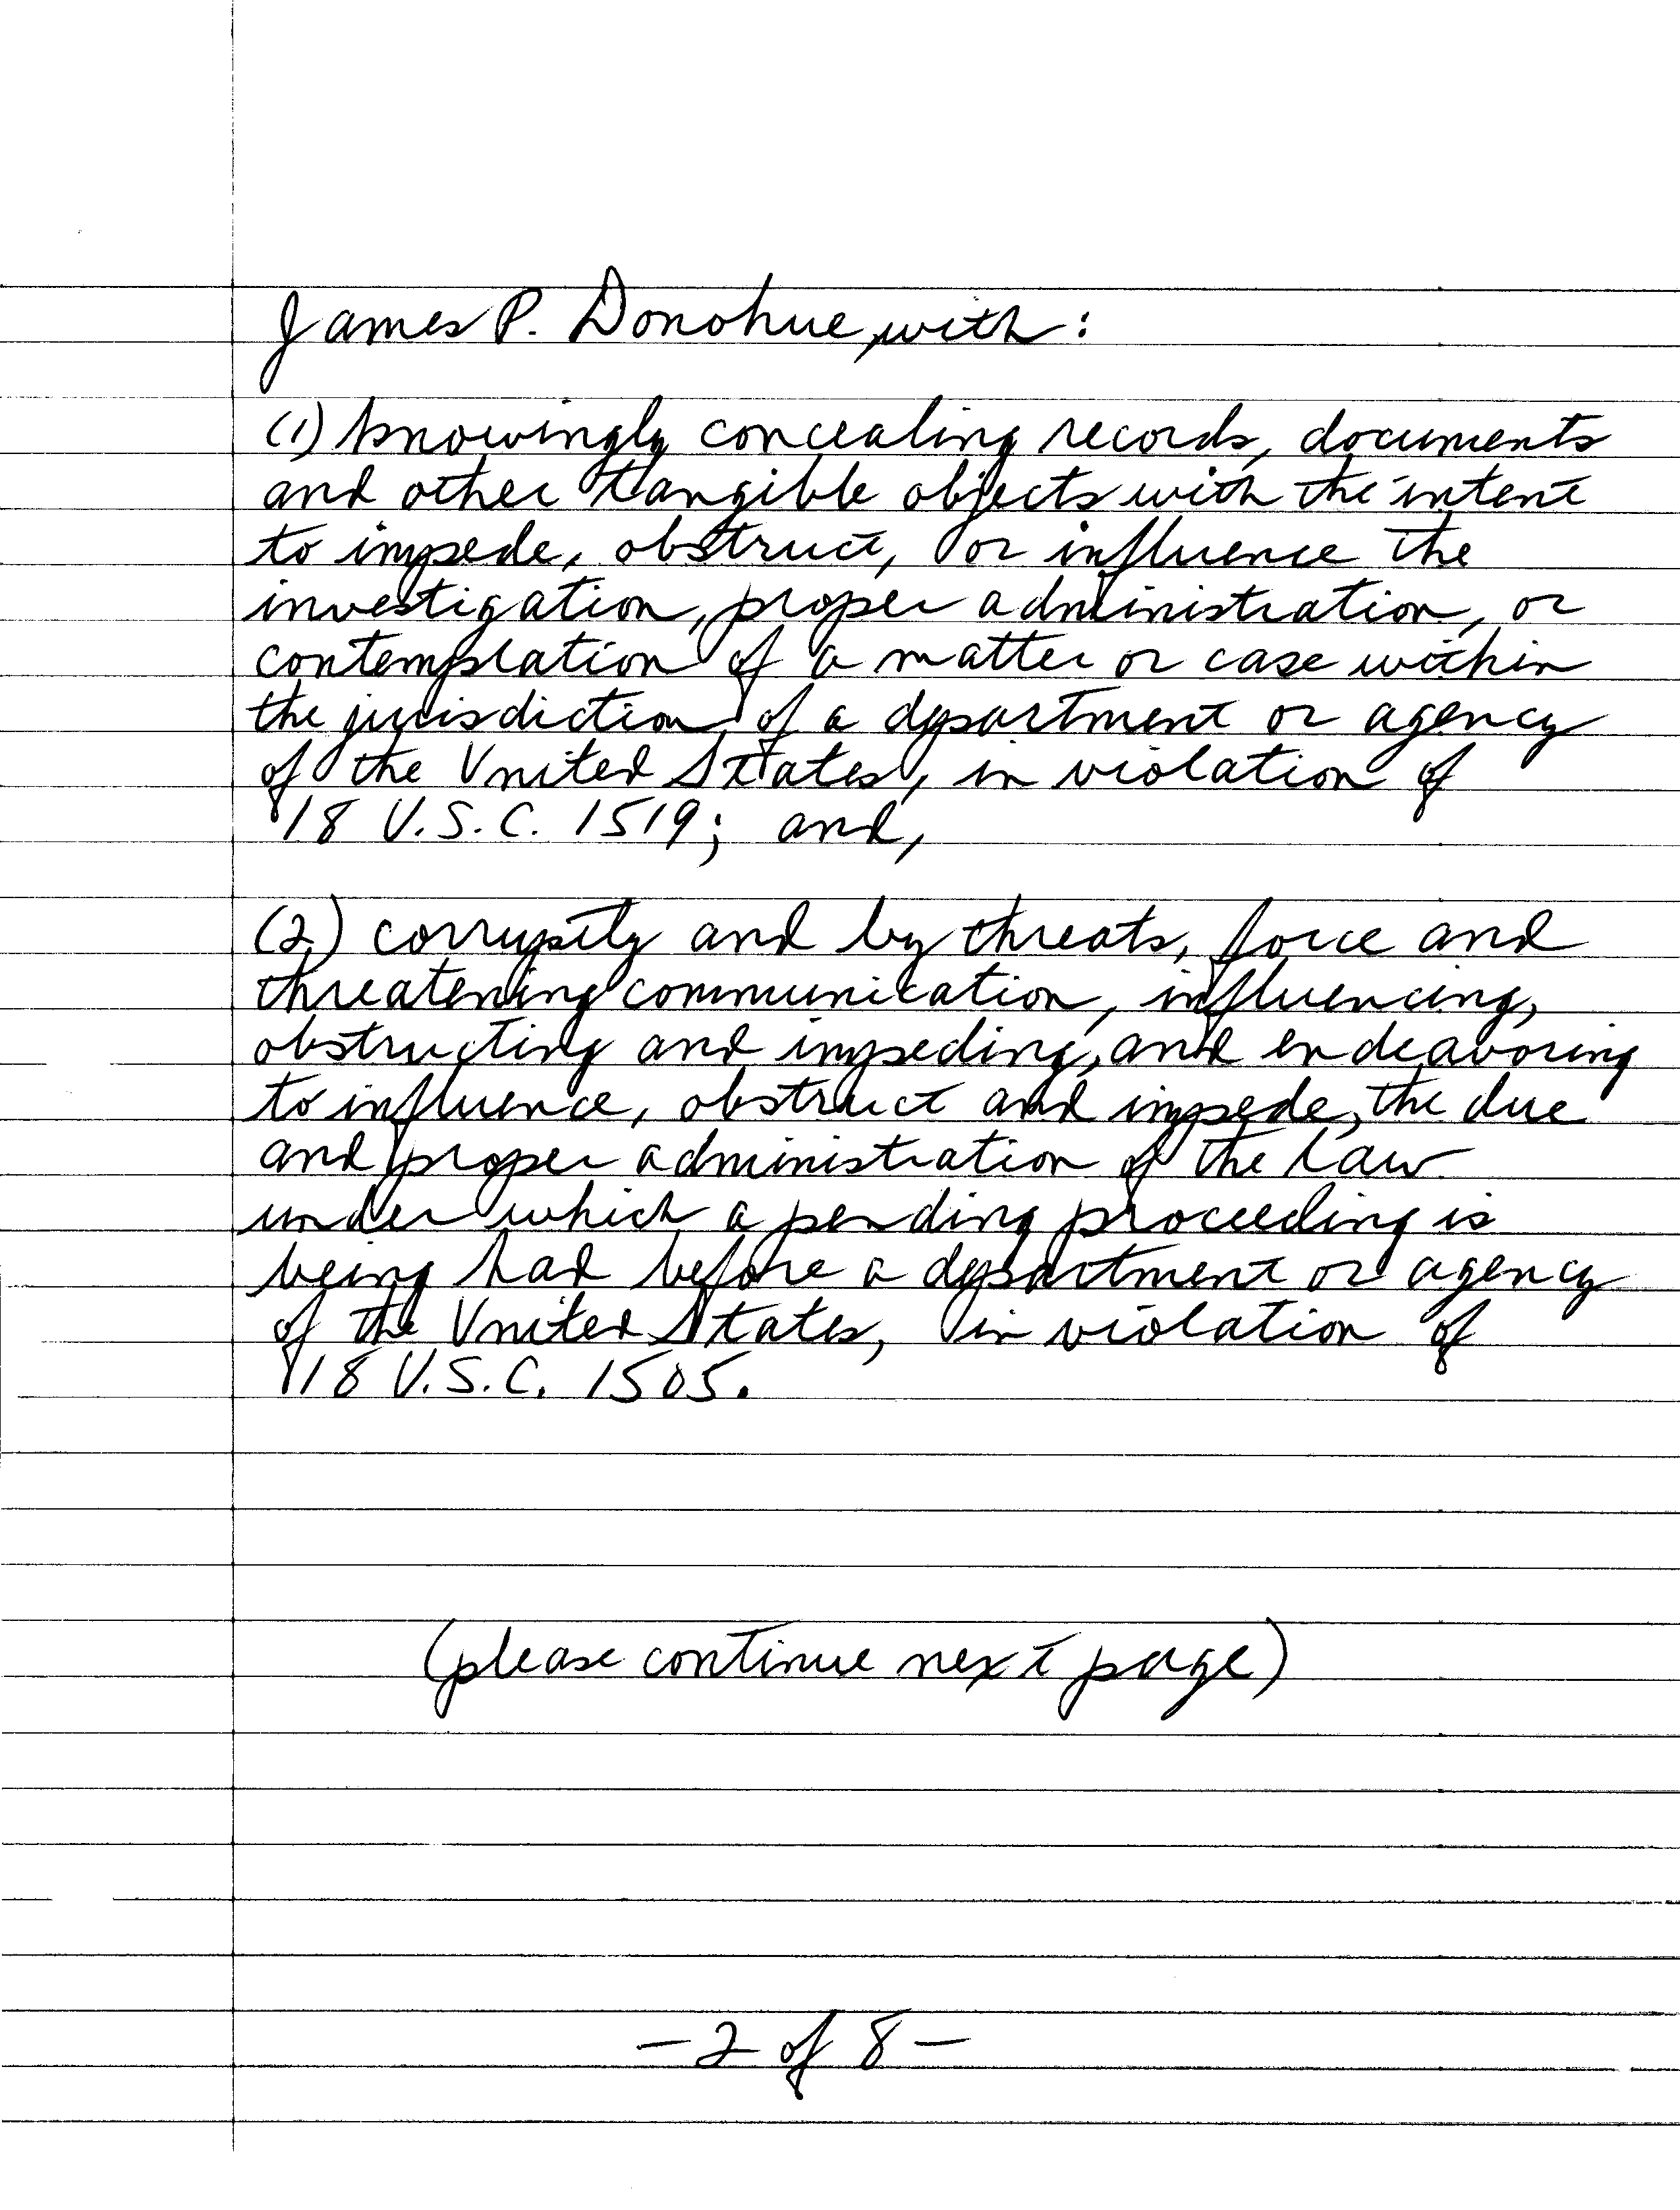 James P. Donohue, with:
(1) knowingly concealing records, documents
and other tangible objects with the intent
to impede, obstruct, or influence the
investigation, proper administration, or
contemplation of a matter or case within
the jurisdiction of a department or agency
of the United States, in violation of
18 U.S.C. 1519; and,
(2) corruptly and by threats, force and
threatening communication, influencing,
obstructing and impeding, and endeavoring
to influence, obstruct and impede, the due
and proper administration of the law
under which a pending proceeding is
being had before a department or agency
of the United States, in violation of
18 U.S.C. 1505.
(please continue next page)
- 2 of 8 -